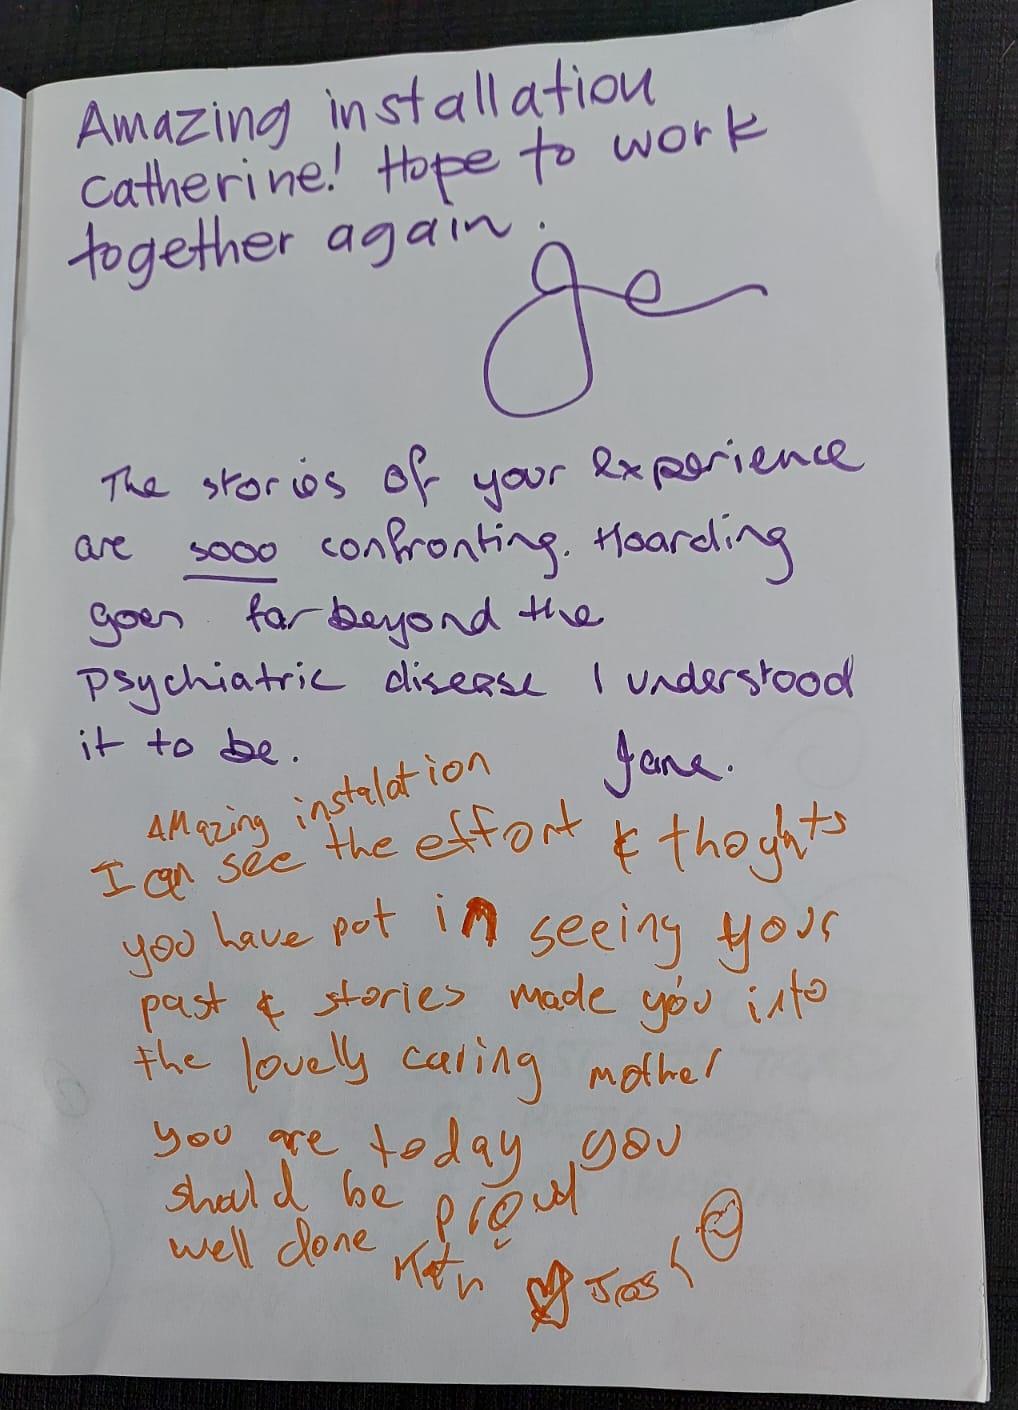 Amazing installation
Catherine! Hope to work
together again.
The stories of your experience
are sooo confronting. Hoarding
goes far beyond the
psychiatric disease I understood
it to be.
Jane.
AMazing instalation
I can see the effort & thoghts
you have pot in seeing your
past & stories made you into
the lovelly caring mother
you are today you
should be proud
well done